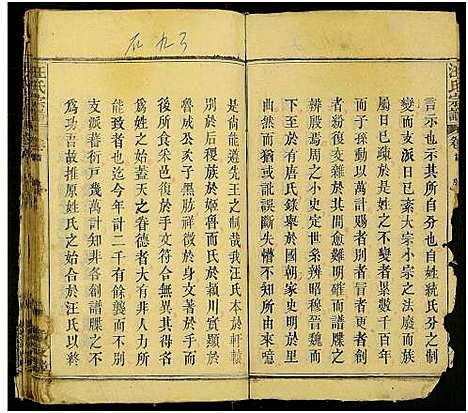 汪氏宗譜
卷首
言示也示其所自分也自姓統氏分之制
變而支派日已紊大宗小宗之法廢而支
屬日已疎於是以姓之不變者累數千百年
而子孫動以萬計賜者別者冒者更者創
者紛起交雜於其間愈難明確而周
辨殷焉周之小史定世系辨昭穆晉魏而
下至於有唐氏錄舉於國朝家史則自
然而猶或訛誤斷失懵不知所由來噫
是尚能遵先王之制哉我汪氏本於軒轅
別於后稷族於姬魯而氏於潁川實顯於
魯成公亥子黑肱祥徵於身文著於手而
後所食釆邑復於手文符合無異其得名
為姓之始蓋天之眷德者大有非人力所
能致者也迄今年計二千有餘襲而作
支派蕃衍戶幾萬計知非各創譜牒之不
為功吾故推原姓氏之始合於汪氏以終